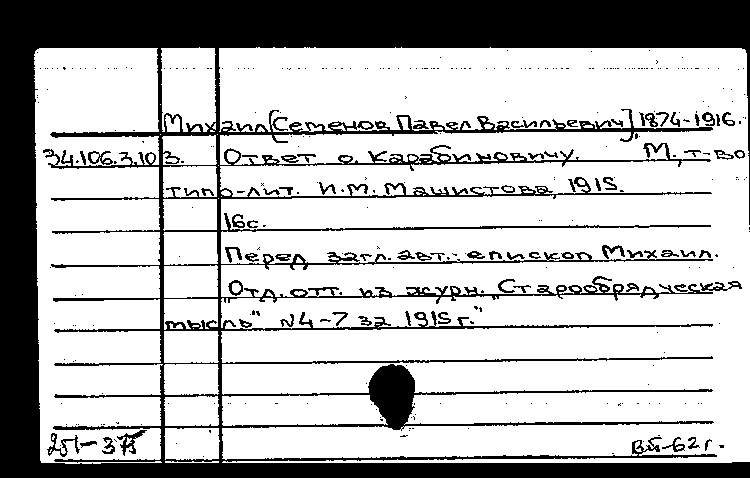 Михаил [Семенов, Павел Васильевич], 1874-1916.
34.106.3.10 3. Ответ о. Карабиновичу. М., т-во
типо-лит. И.М. Машистова, 1915.
16с.
Перед загл. авт.: епископ Михаил.
"Отд. отт. из журн. "Старообрядческая
мысль" №4-7 за 1915 г."
251-375 ВЙ-62 г.